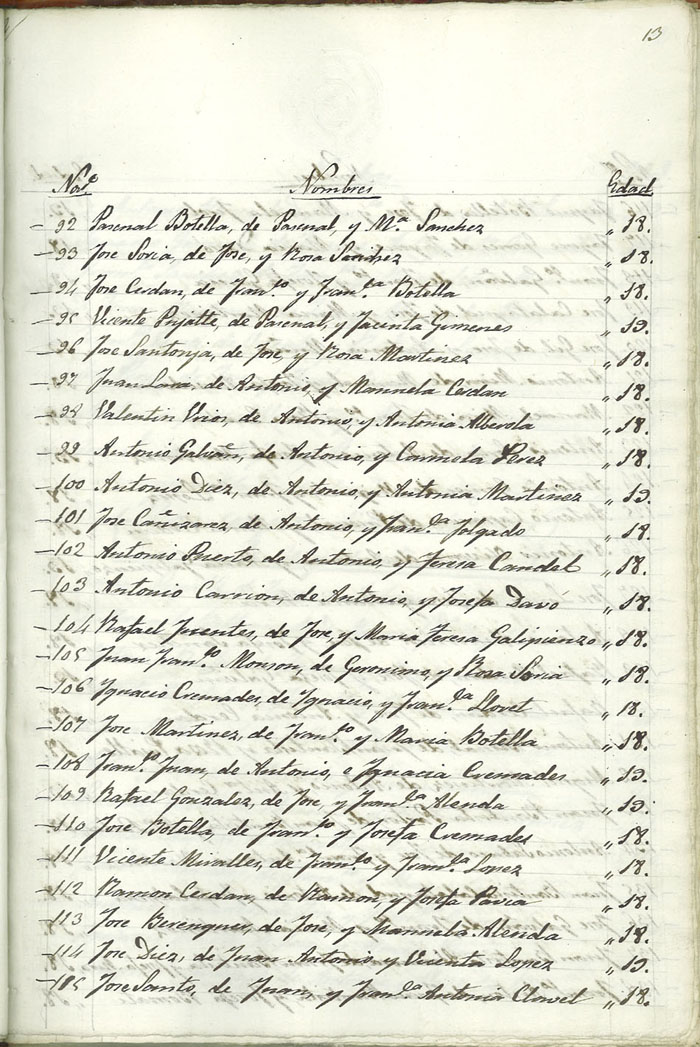 13
Nos. Nombres Edad.
92 Pascual Botella, de Pascual, y Mª Sanchez „ 18.
93 Jose Soria, de Jose, y Rosa Sanchez „ 18.
94 Jose Cerdan, de Franco. y Franca. Botella „ 18.
95 Vicente de Pascual, y Jacinta Gimenes „ 19.
96 Jose Santonja, de Jose, y Rosa Martinez „ 18.
97 Juan Lara, de Antonio, y Manuela Cerdan „ 18.
98 Valentin de Antonio, y Antonia Alberola „ 18.
99 Antonio Galvañ, de Antonio, y Carmela Perez „ 18.
100 Antonio Diez, de Antonio, y Antonia Martinez „ 19.
101 Jose Cañizarez, de Antonio, y Franca. Folgado „ 18.
102 Antonio Puerto, de Antonio, y Teresa Candel „ 18.
103 Antonio Carrion, de Antonio, y Josefa Davó „ 18.
104 Rafael Fuentes, de Jose, y Maria Teresa Galipienzo „ 18.
105 Juan Franco. Monzon, de Geronimo, y Rosa Soria „ 18.
106 Ignacio Cremades, de Ignacio, y Franca. Lloret „ 18.
107 Jose Martinez, de Franco. y Maria Botella „ 18.
108 Franco. Juan, de Antonio, e Ignacia Cremades „ 19.
109 Rafael Gonzalez, de Jose, y Franca. Alenda „ 19.
110 Jose Botella, de Franco. y Josefa Cremades „ 18.
111 Vicente Miralles, de Franco. y Franca. Lopez „ 18.
112 Ramon Cerdan, de Ramon, y Josefa Pavia „ 18.
113 Jose Berenguer, de Jose, y Manuela Alenda „ 18.
114 Jose Diez, de Juan Antonio, y Vicenta Lopez „ 19.
115 Jose Santo, de Juan, y Franca. Antonia Clavel „ 18.